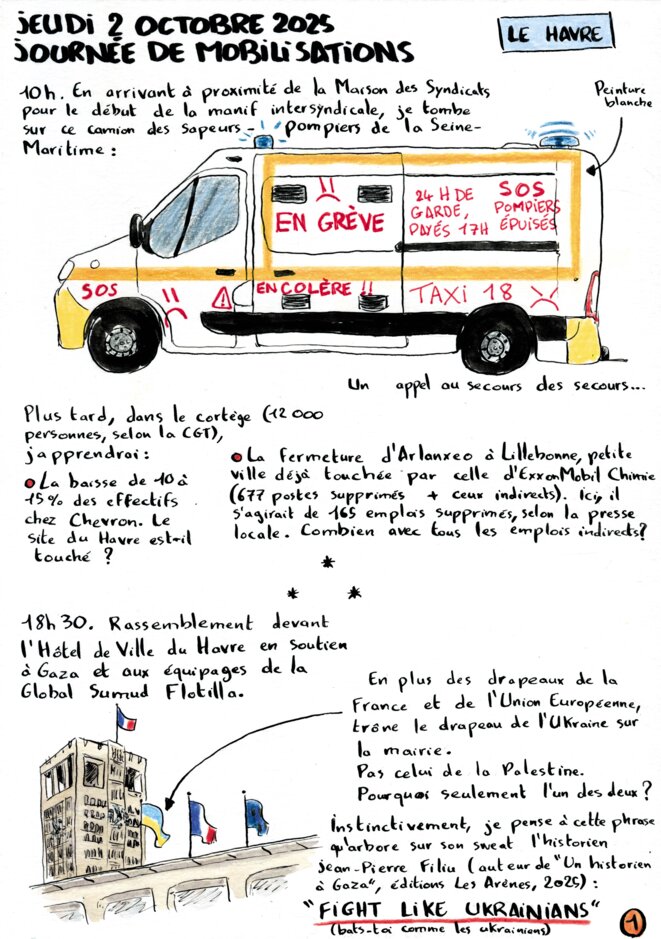 JEUDI 2 OCTOBRE 2025
JOURNÉE DE MOBILISATIONS
LE HAVRE
10h. En arrivant à proximité de la Maison des Syndicats
pour le début de la manif intersyndicale, je tombe
sur ce camion des Sapeurs-pompiers de la Seine-
Maritime :
Peinture
blanche
EN GRÈVE
24 H DE
GARDE,
PAYÉS 17H
SOS
POMPIERS
ÉPUISÉS
SOS
!
EN COLÈRE !!
TAXI 18
Un appel au secours des secours...
Plus tard, dans le cortège (12 000
personnes, selon la CGT),
j'apprendrai :
• La baisse de 10 à
15% des effectifs
chez Chevron. Le
site du Havre est-il
touché ?
• La fermeture d'Arlanxeo à Lillebonne, petite
ville déjà touchée par celle d'ExxonMobil Chimie
(677 postes supprimés + ceux indirects). Ici, il
s'agirait de 165 emplois supprimés, selon la presse
locale. Combien avec tous les emplois indirects?
* * *
18h30. Rassemblement devant
l'Hôtel de Ville du Havre en soutien
à Gaza et aux équipages de la
Global Sumud Flotilla.
En plus des drapeaux de la
France et de l'Union Européenne,
trône le drapeau de l'Ukraine sur
la mairie.
Pas celui de la Palestine.
Pourquoi seulement l'un des deux ?
Instinctivement, je pense à cette phrase
qu'arbore sur son sweat l'historien
Jean-Pierre Filiu (auteur de "Un historien
à Gaza", éditions Les Arènes, 2025) :
"FIGHT LIKE UKRAINIANS"
(bats-toi comme les ukrainiens)
1